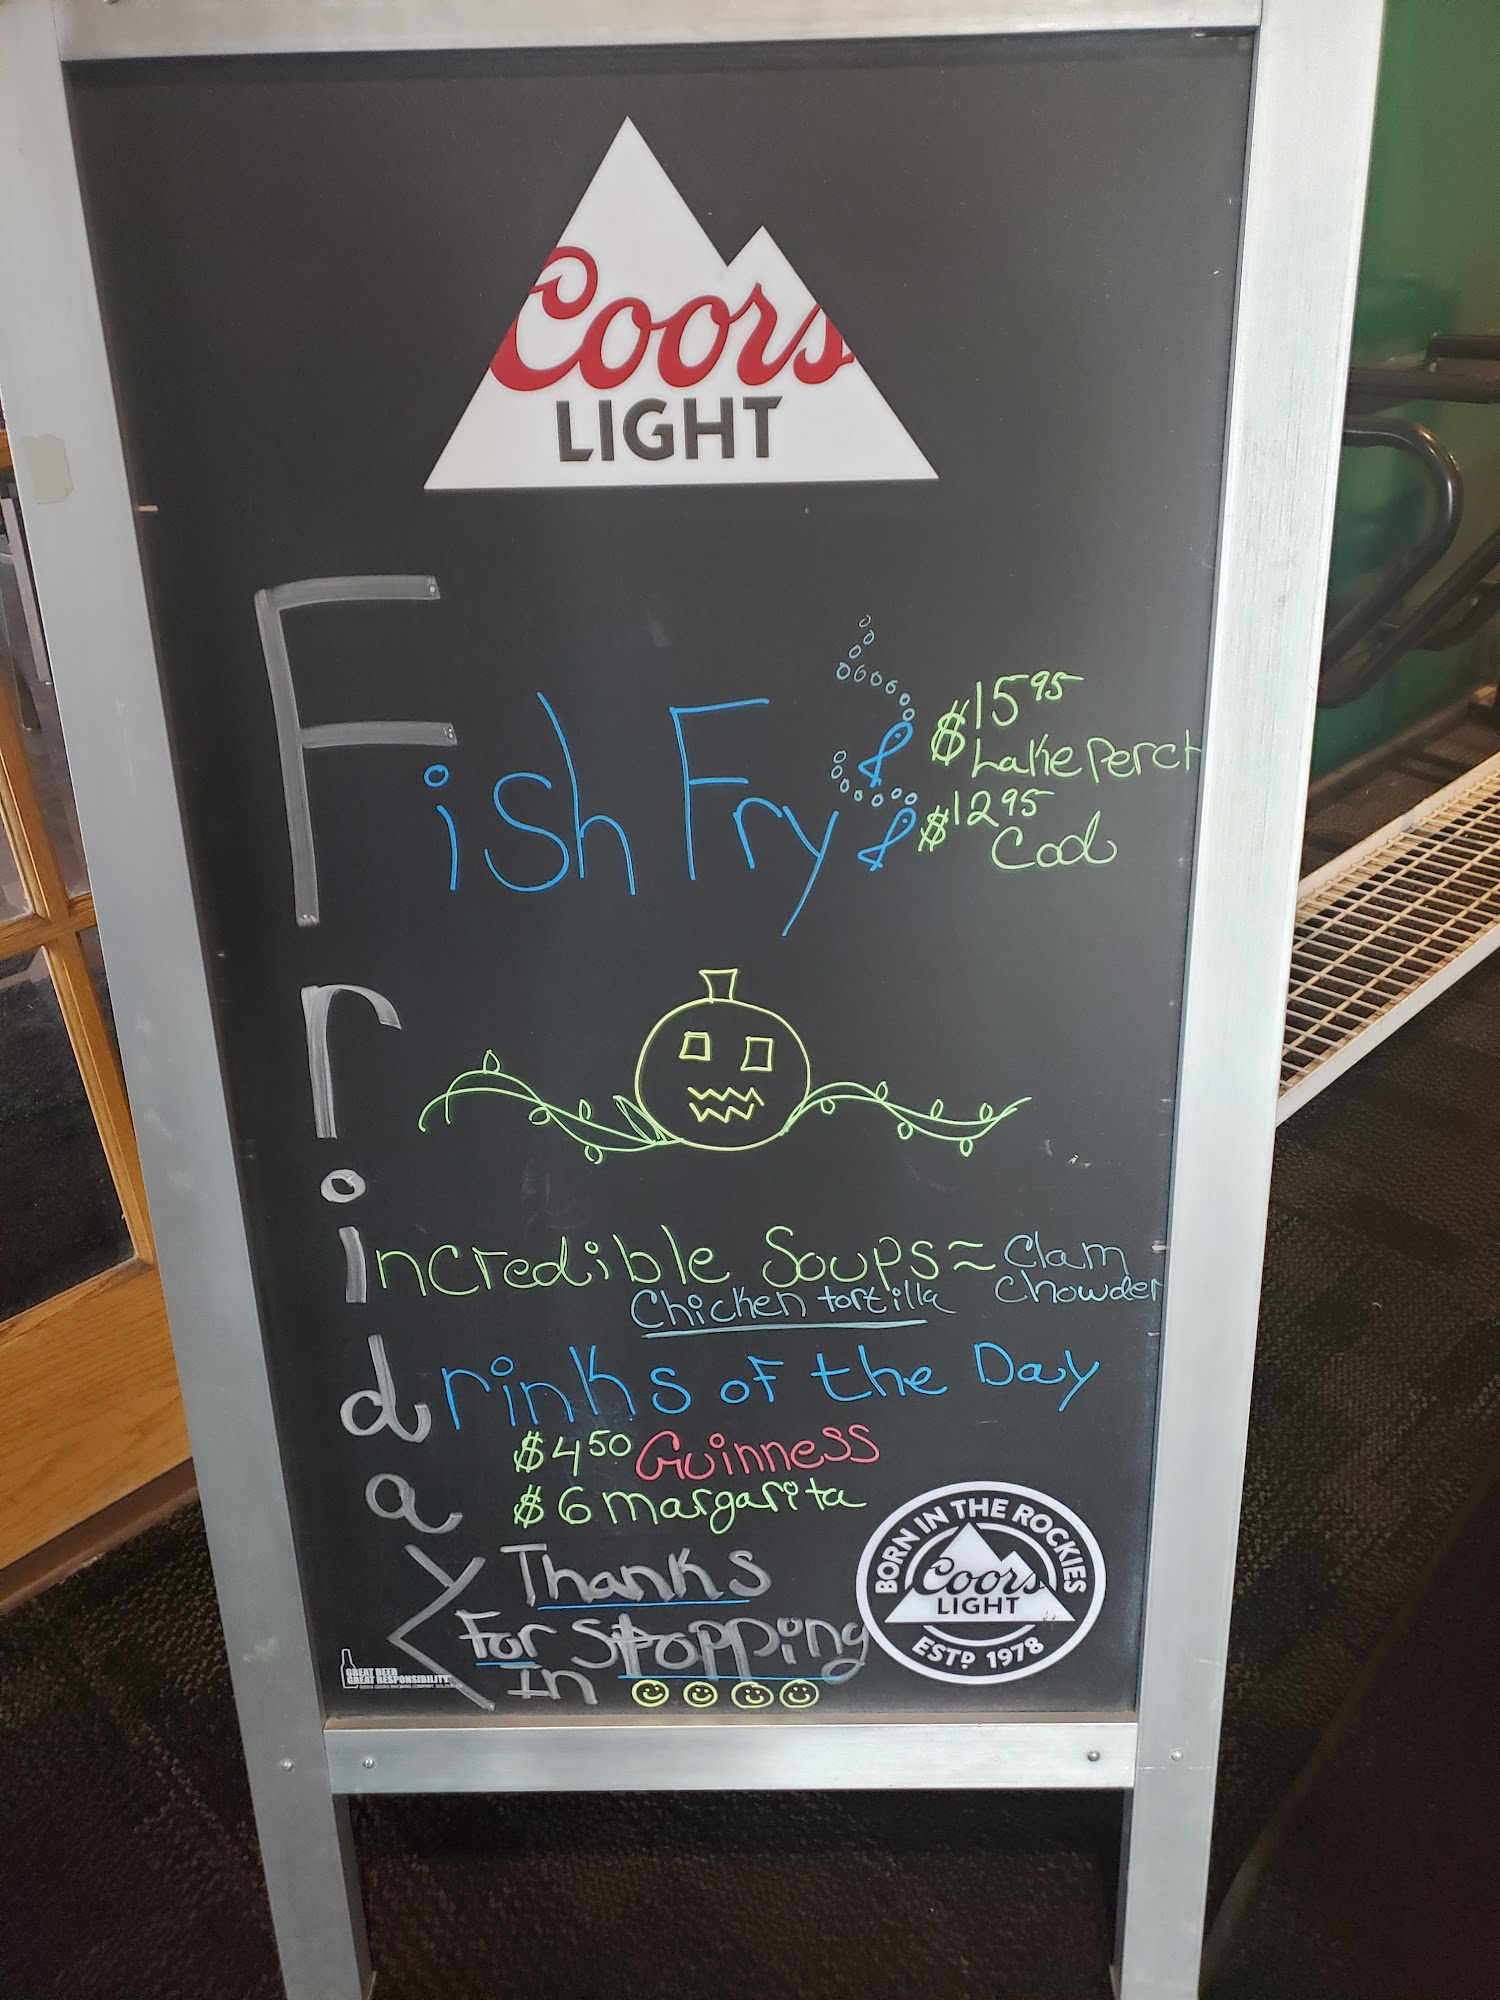 Coors
LIGHT
Fish Fry
$15.95
Lake Perch
$12.95
Cod
Friday
Incredible Soups ~ Clam
Chicken tortilla Chowder
drinks of the Day
$4.50 Guinness
$6 margarita
Thanks
For Stopping
In
BORN IN THE ROCKIES
Coors
LIGHT
ESTD 1978
GREAT BEER
GREAT RESPONSIBILITY